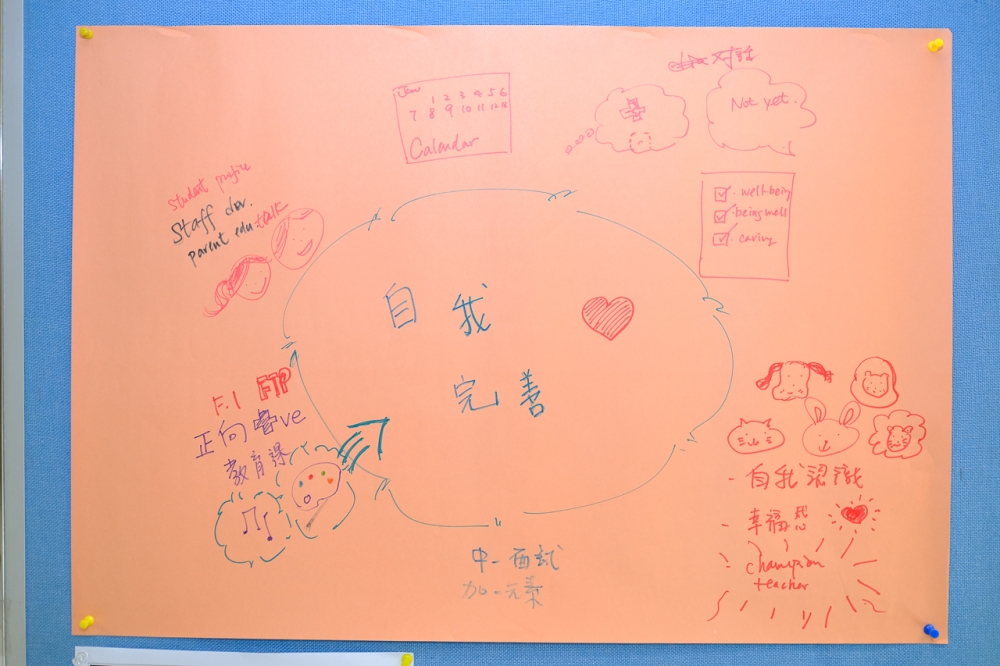 对話
Jan
1 2 3 4 5 6
7 8 9 10 11 12 13
Calendar
Not yet.
Student profile
Staff dev.
parent edu. talk
☑ · well-being
☑ · being well
☑ · caring
自我
完善
F.1 FTP
正向 ve
教育課
- 自我認識
- 幸福感
- champion
teacher
中一面試
加一元素